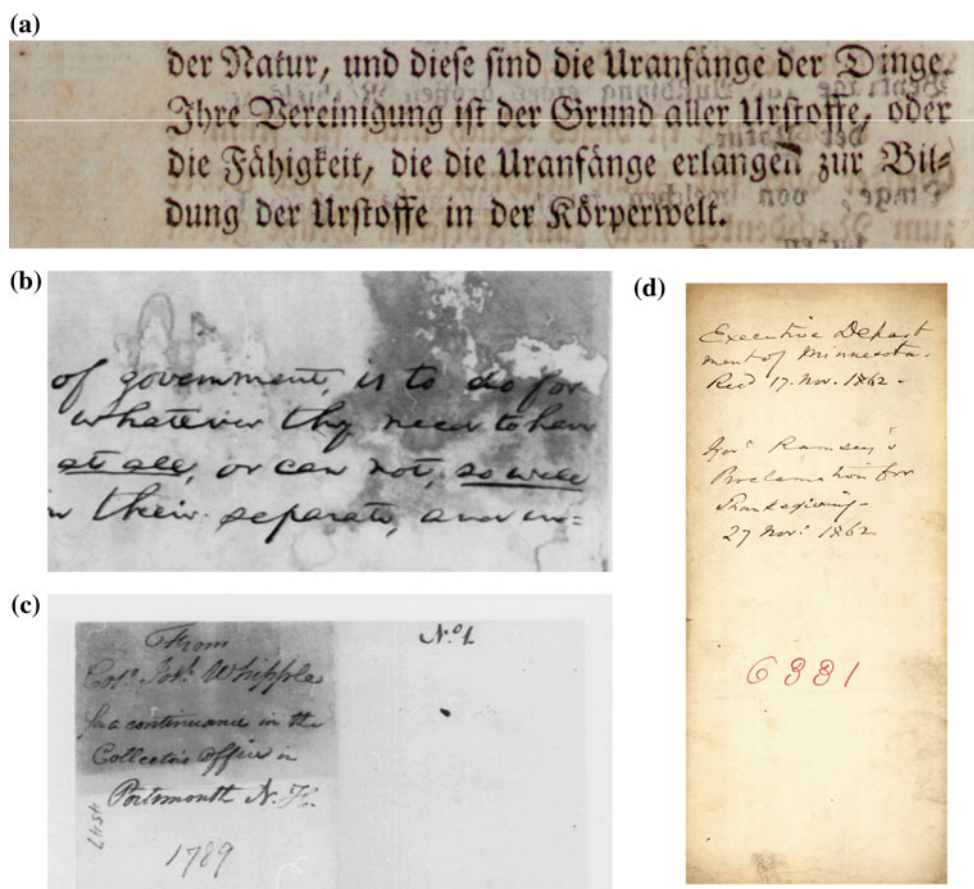 (a)
der Natur, und diese sind die Uranfänge der Dinge.
Ihre Vereinigung ist der Grund aller Urstoffe, oder
die Fähigkeit, die die Uranfänge erlangen zur Bil=
dung der Urstoffe in der Körperwelt.
(b)
of government, is to do for
whatever thy need to have
at all, or can not, so well
in their separate, and in=
(c)
From
Josh. Whipple
for a continuance in the
Collectors Office in
Portsmouth N. H.
4547
1789
No. 1
(d)
Executive Depart
ment of Minnesota.
Recd 17. Nov. 1862 -
Govr Ramsey's
Proclamation for
Thanksgiving -
27 Nov: 1862
6331